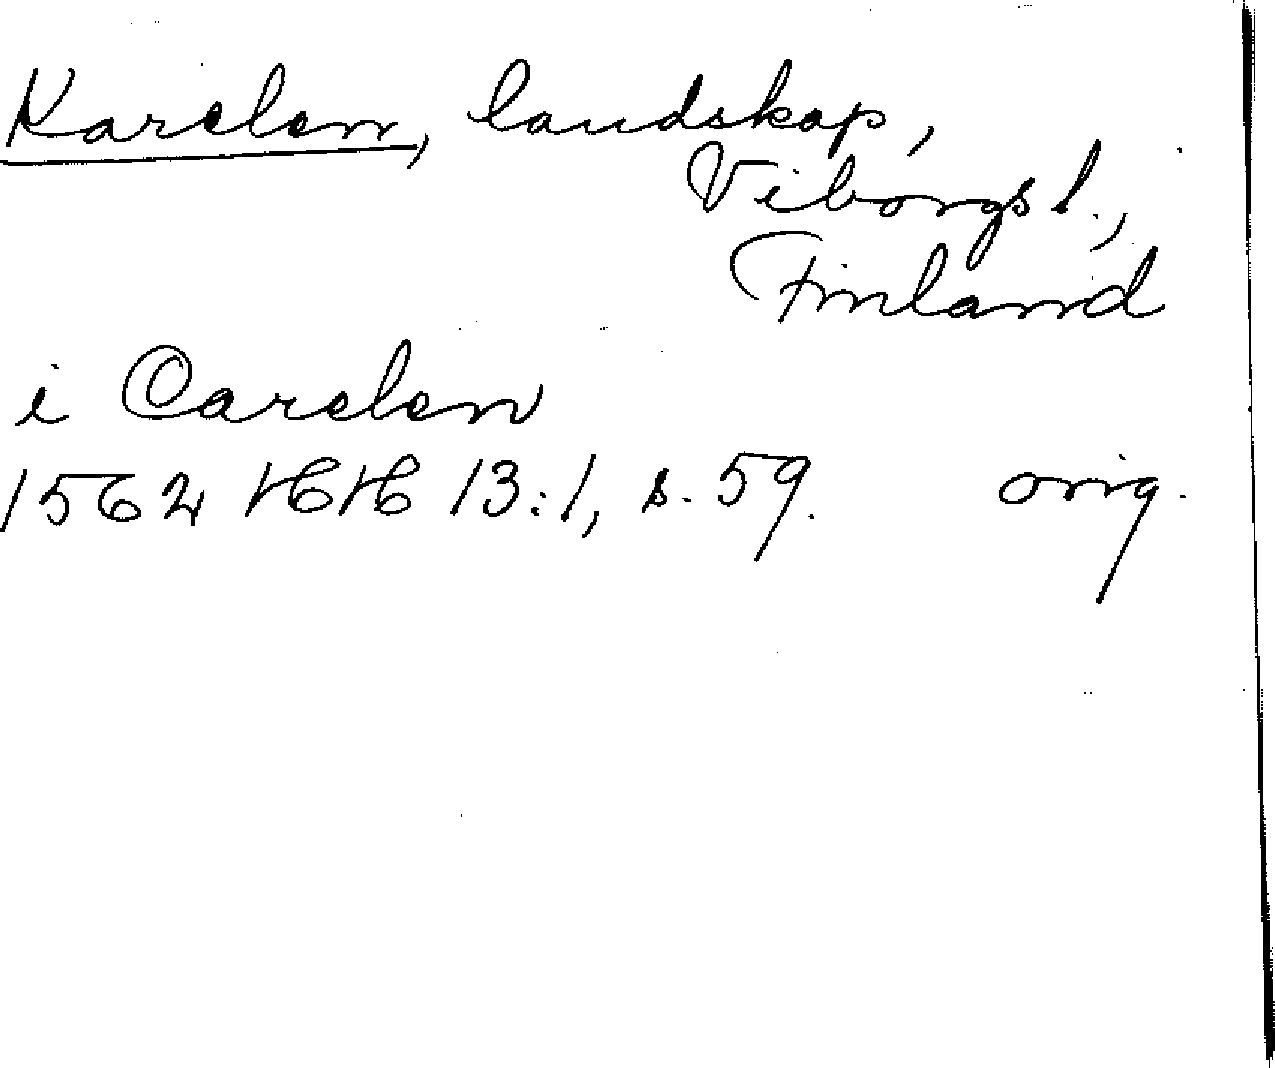 Karelen, landskap,
Viborgs l.,
Finland
i Carelen
1562 HH 13:1, s. 59. orig.